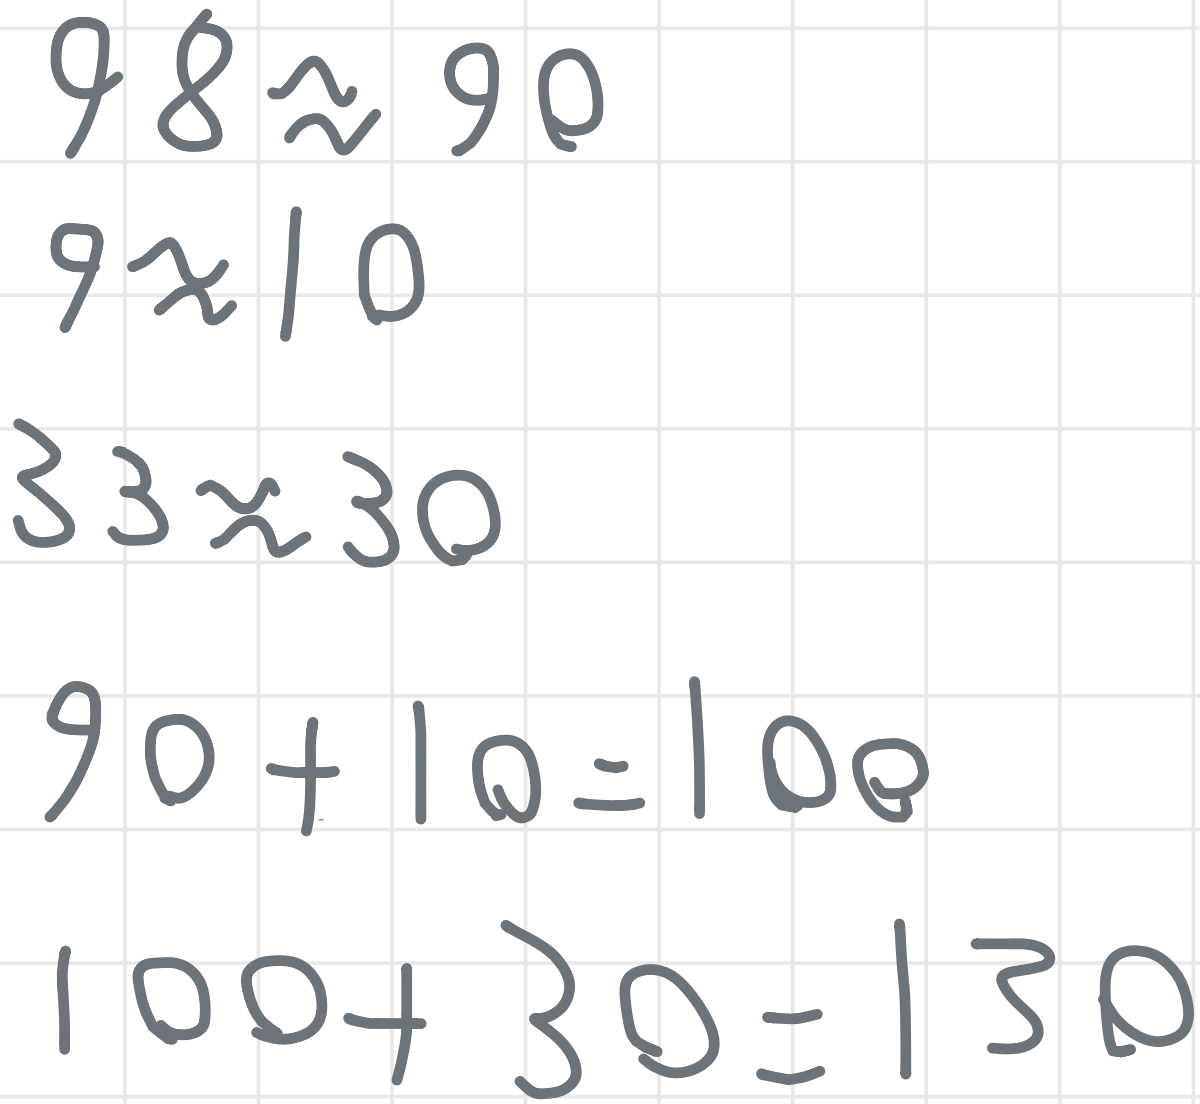 98≈90
9≈10
33≈30
90+10=100
100+30=130